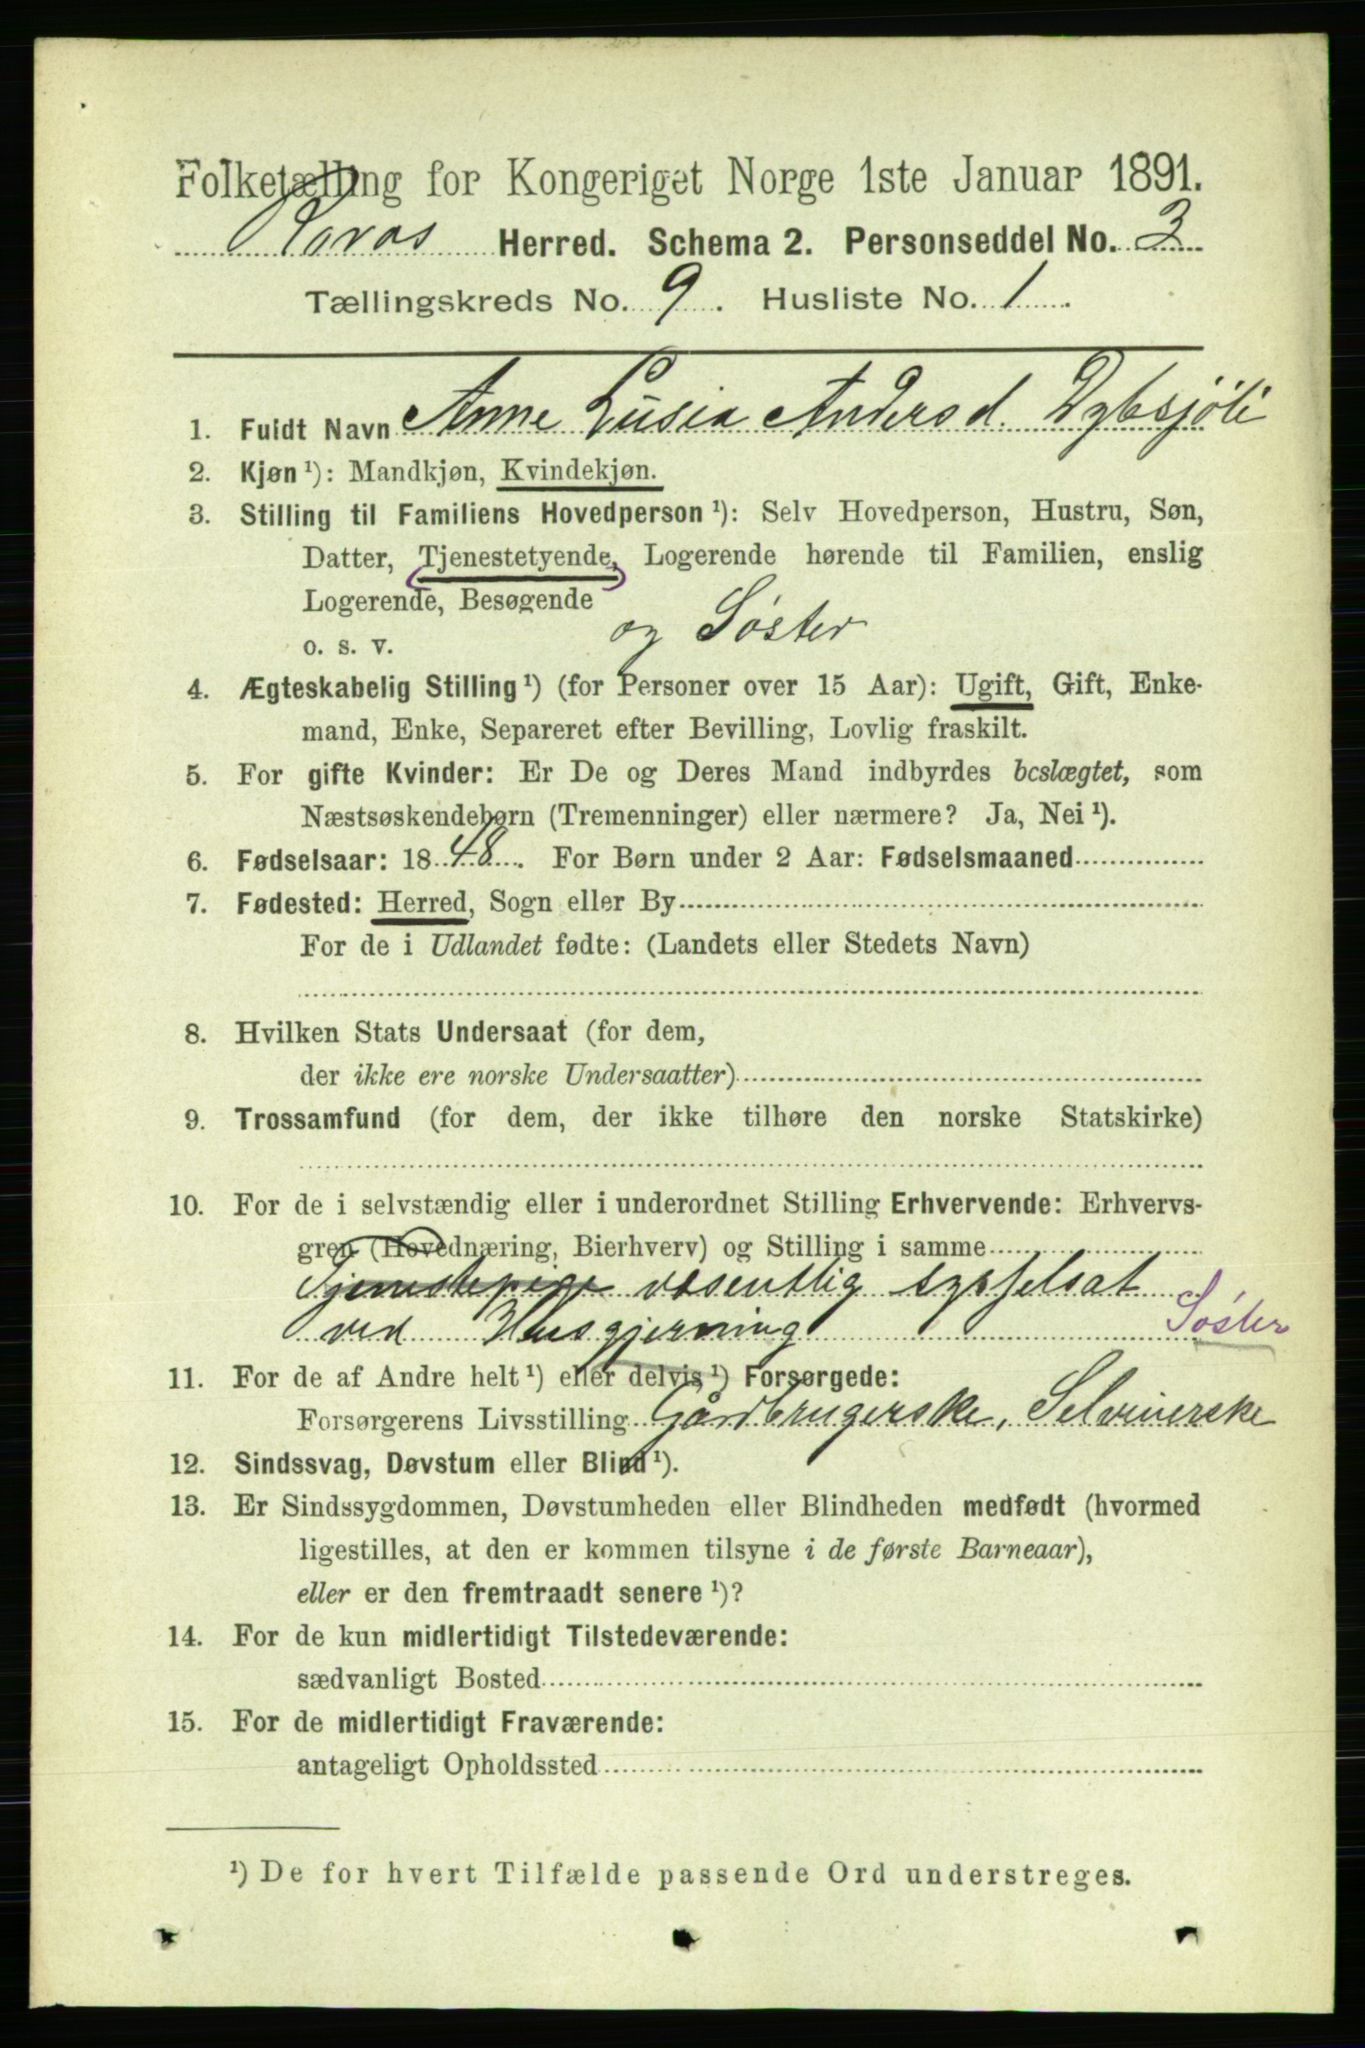 Folketælling for Kongeriget Norge 1ste Januar 1891.
Røros Herred. Schema 2. Personseddel No. 3
Tællingskreds No. 9. Husliste No. 1
1. Fuldt Navn Anne Lusia Andersd. Dybsjöli
2. Kjøn ¹): Mandkjøn, Kvindekjøn.
3. Stilling til Familiens Hovedperson ¹): Selv Hovedperson, Hustru, Søn,
Datter, Tjenestetyende, Logerende hørende til Familien, enslig
Logerende, Besøgende
o. s. v. og Söster
4. Ægteskabelig Stilling ¹) (for Personer over 15 Aar): Ugift, Gift, Enke-
mand, Enke, Separeret efter Bevilling, Lovlig fraskilt.
5. For gifte Kvinder: Er De og Deres Mand indbyrdes beslægtet, som
Næstsøskendebørn (Tremenninger) eller nærmere? Ja, Nei ¹).
6. Fødselsaar: 1848. For Børn under 2 Aar: Fødselsmaaned
7. Fødested: Herred, Sogn eller By
For de i Udlandet fødte: (Landets eller Stedets Navn)
8. Hvilken Stats Undersaat (for dem,
der ikke ere norske Undersaatter)
9. Trossamfund (for dem, der ikke tilhøre den norske Statskirke)
10. For de i selvstændig eller i underordnet Stilling Erhvervende: Erhvervs-
gren (Hovednæring, Bierhverv) og Stilling i samme
Tjenestepige væsentlig sysselsat
ved Husgjerning Söster
11. For de af Andre helt ¹) eller delvis ¹) Forsørgede:
Forsørgerens Livsstilling Gårdbrugerske, Selveierske
12. Sindssvag, Døvstum eller Blind ¹).
13. Er Sindssygdommen, Døvstumheden eller Blindheden medfødt (hvormed
ligestilles, at den er kommen tilsyne i de første Barneaar),
eller er den fremtraadt senere ¹)?
14. For de kun midlertidigt Tilstedeværende:
sædvanligt Bosted
15. For de midlertidigt Fraværende:
antageligt Opholdssted
¹) De for hvert Tilfælde passende Ord understreges.